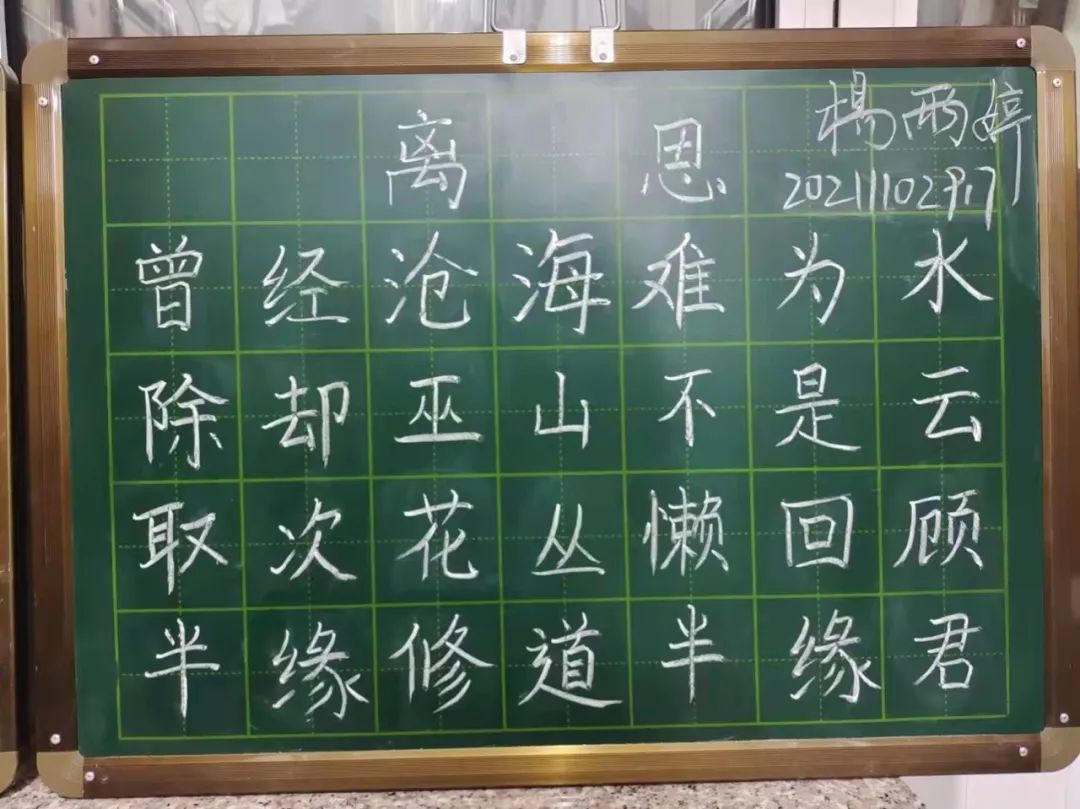 离恩
楊雨婷
20211102917
曾经沧海难为水
除却巫山不是云
取次花丛懒回顾
半缘修道半缘君